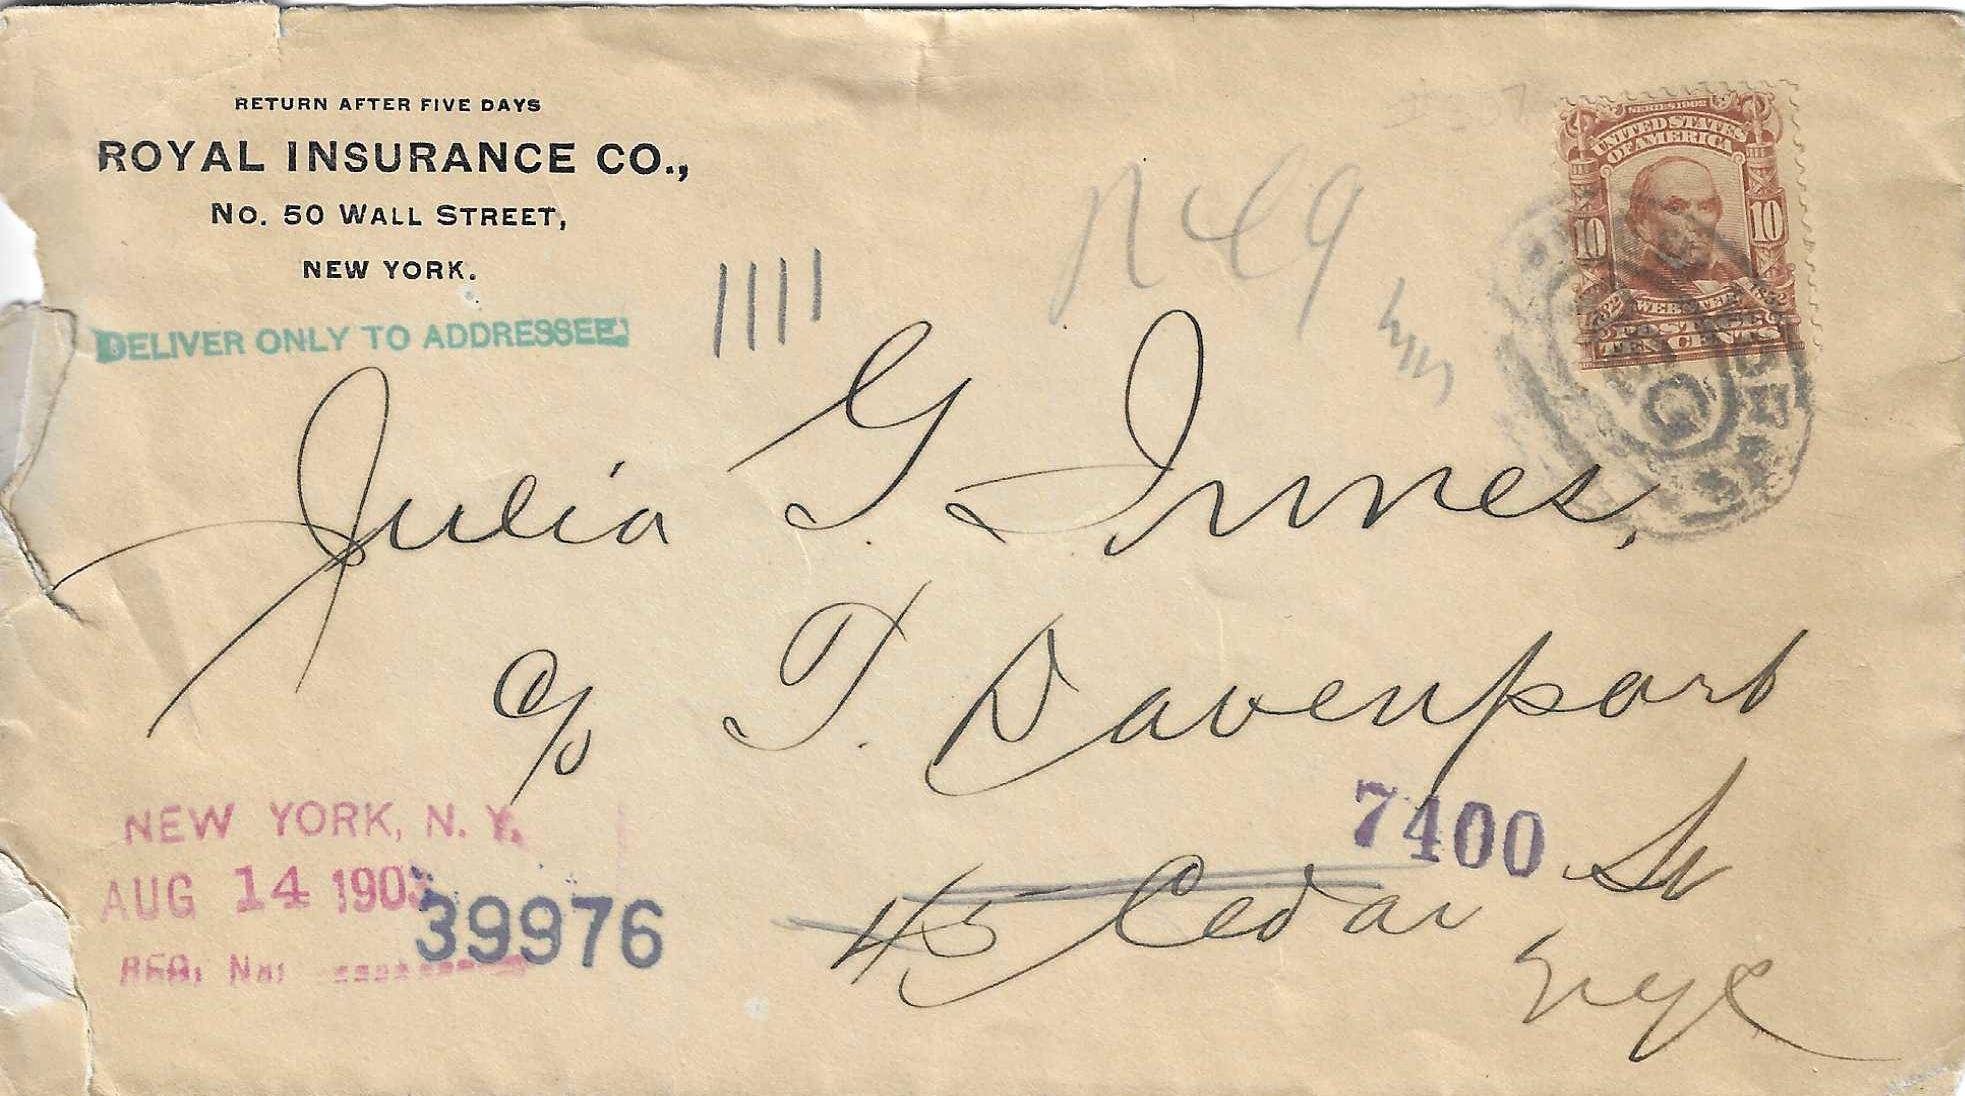 RETURN AFTER FIVE DAYS
ROYAL INSURANCE CO.,
No. 50 WALL STREET,
NEW YORK.
DELIVER ONLY TO ADDRESSEE
SERIES 1902
UNITED STATES
OF AMERICA
10 10
1782 WEBSTER 1852
POSTAGE
TEN CENTS
Julia G. Innes,
c/o T. Davenport
7400
45 Cedar St
NEW YORK, N. Y.
AUG 14 1903
39976
REG. No.